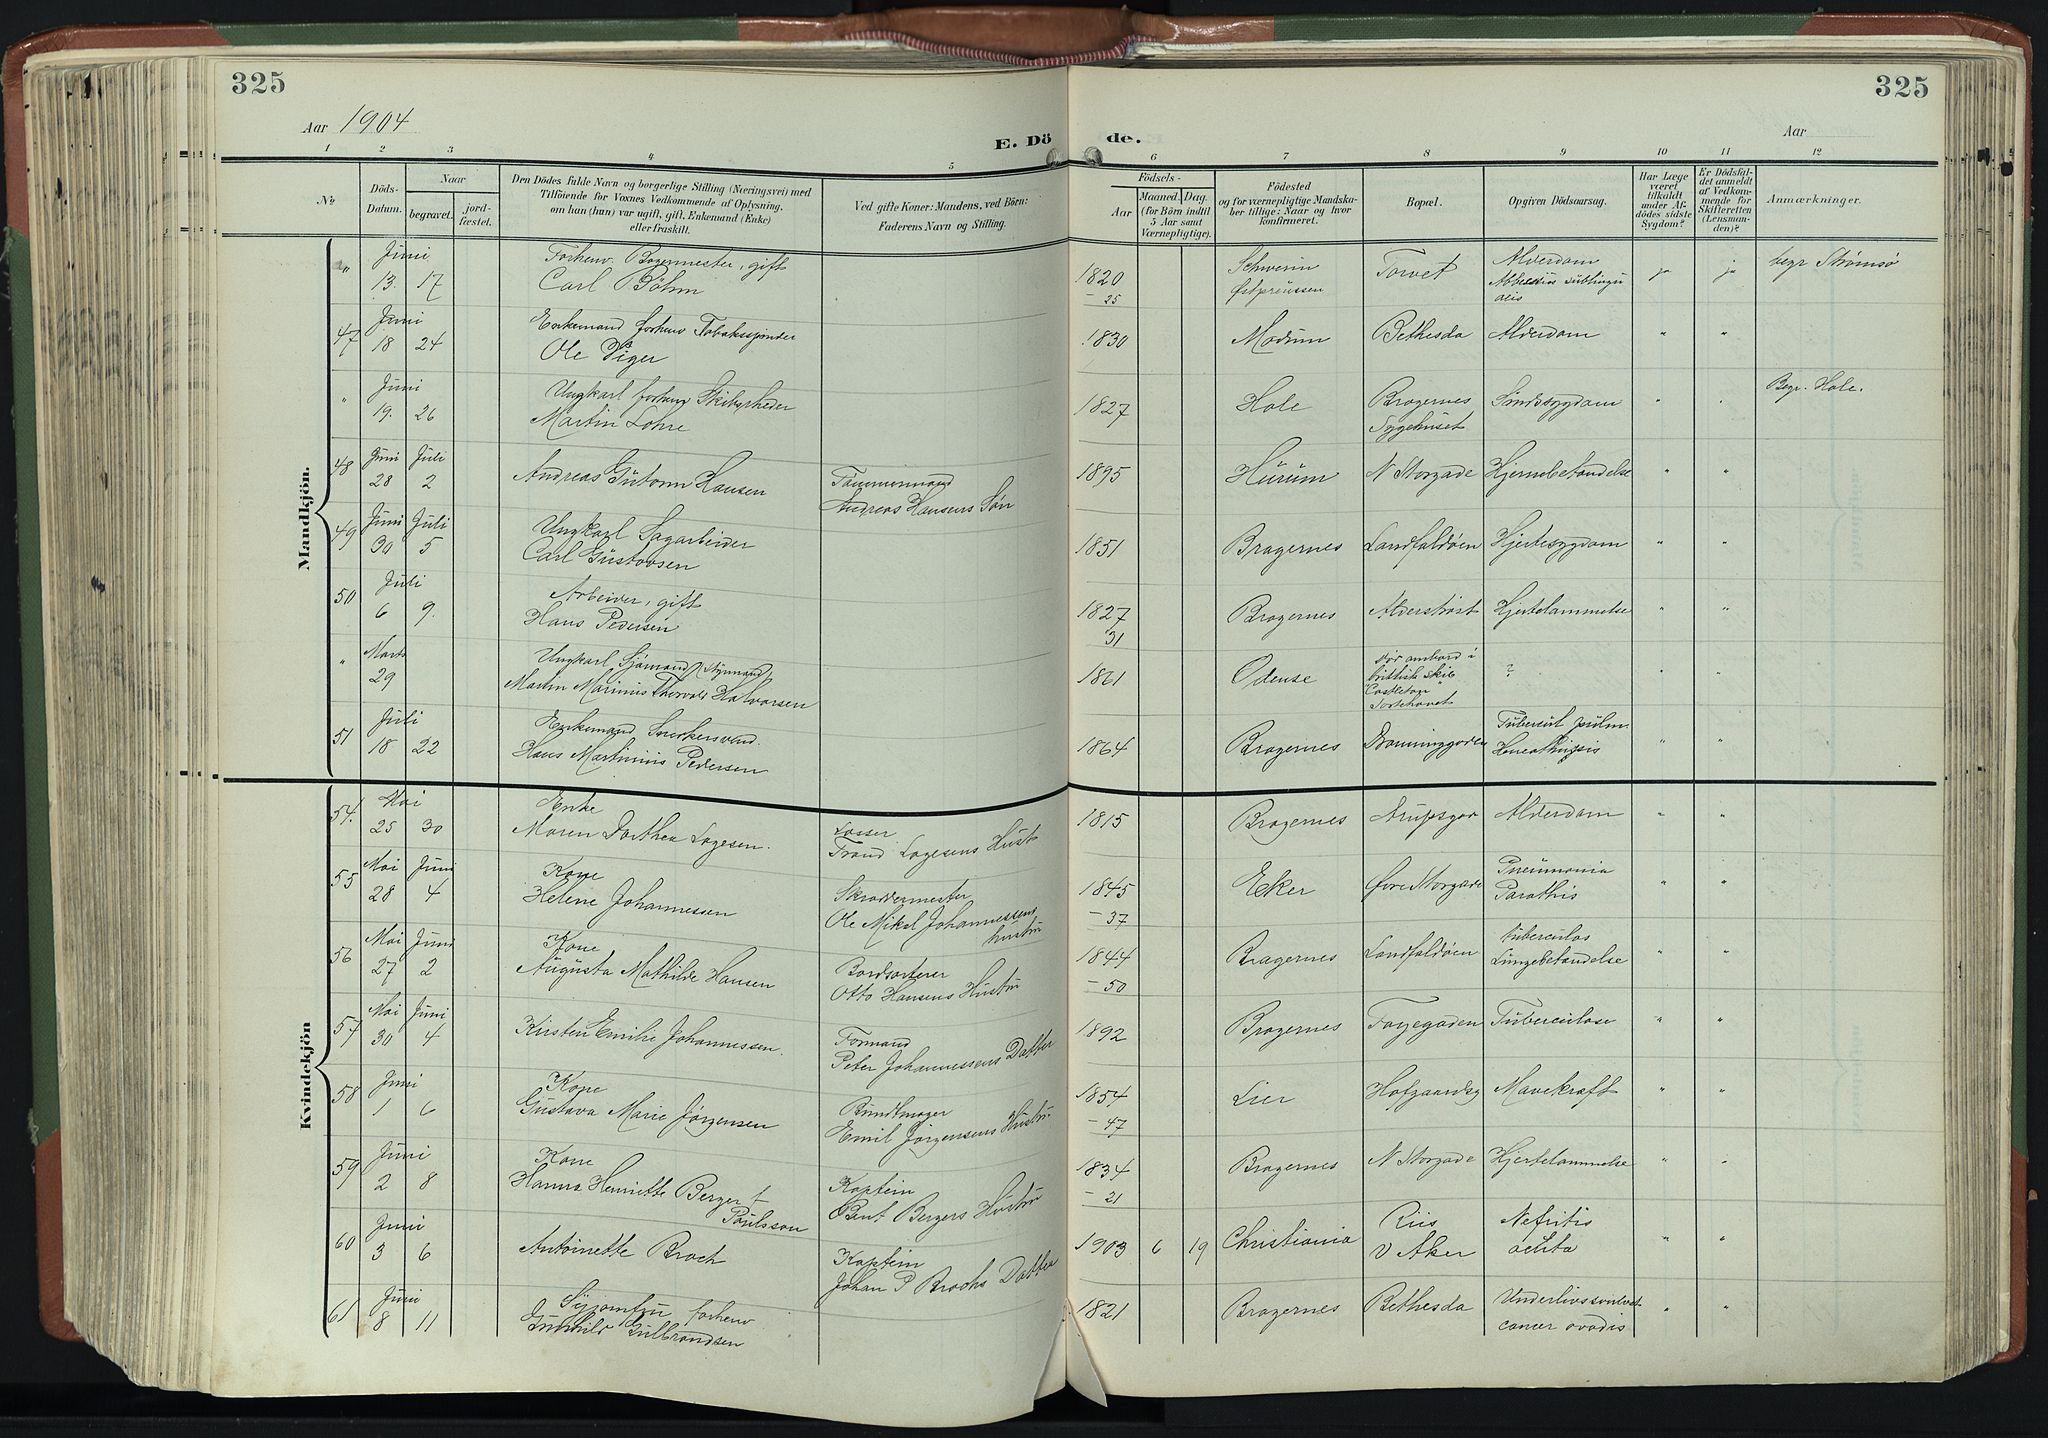 325
325
Aar 1904
E. Dö de.
Aar
1 2 3 4 5 6 7 8 9 10 11 12
№
Döds-Datum.
Naar
begravet.
jordfæstet.
Den Dödes fulde Navn og borgerlige Stilling (Næringsvei) med
Tilföiende for Voxnes Vedkommende af Oplysning,
om han (hun) var ugift, gift, Enkemand (Enke)
eller fraskilt.
Ved gifte Koner: Mandens, ved Börn:
Faderens Navn og Stilling.
Födsels-
Aar
Maaned. Dag.
(for Börn indtil
5 Aar samt
Værnepligtige).
Födested
og for værnepligtige Mandskaber tillige: Naar og hvor
konfirmeret.
Bopæl.
Opgiven Dödsaarsag.
Har Læge
været
tilkaldt
under Afdödes sidste
Sygdom?
Er Dödsfaldet anmeldt
af Vedkommende for
Skifteretten
(Lensmanden)?
Anmærkninger.
Mandkjön.
" Juni 13. 17 Forhenv. Bagermester, gift
Carl Böhm
1820 - 25 Schwerin Østpreussen Torvet Alderdom ja ja begr Strømsø
47 Juni 18 24 Enkemand forhenv Tobaksspinder
Ole Piger
1830 Modum Bethesda Alderdom " "
" Juni 19. 26 Ungkarl forhenv Skibsrheder
Martin Lohre
1827 Hole Bragernes Sygehuset Sindssygdom " " Begr. Hole.
48 Juni 28 Juli 2 Andreas Gutorm Hansen
Tømmermand
Andreas Hansens Søn
1895 Hurum N Storgade Hjernebetændelse " "
49 Juni 30 Juli 5 Ungkarl Sagarbeider
Carl Gustavsen
1851 Bragernes Landfaldøen Hjertesygdom " "
50 Juli 6 9. Arbeider, gift
Hans Pedersen
1827 31 Bragernes Alderstrøst Hjertelammelse " "
" Marts 29 Ungkarl Sjömand (Styrmand)
Martin Marinus Thorvald Halvorsen
1861 Odense død ombord i
brittisk Skib
"Castleton"
? " "
51 Juli 18 22 Enkemand Snekkersvend.
Hans Martinius Pedersen
1864 Bragernes Dronninggaden Tubercul pulm.
" "
Kvindekjön
54. Mai 25 30 Enke
Maren Dorthea Lagesen.
Losser
Trond Lagesens Hustr
1815 Bragernes Arupsgad Alderdom " "
55 Mai 28 Juni 4 Kone
Helene Johannessen
Skræddermester
Ole Mikal Johannessens
hustru
1845 - 37 Eker Øvre Storgade Pneumonia
" "
56 Mai 27 Juni 2 Kone
Augusta Mathilde Hansen
Bordsorterer
Otto Hansens Hustru
1844 - 50 Bragernes Landfaldøen tuberculos
Lungebetændelse " "
57 Mai 30 Juni 4 Kirsten Emilie Johannessen.
Formand
Peter Johannessens Datter
1892 Bragernes Tuberculose " "
58 Juni 1 6 Kone
Gustava Marie Jørgensen
Bundtmager
Emil Jørgensens Hustru
1854 - 47 Lier Hofgaardsg Mavekræft " "
59 Juni 2 8 Kone
Hanna Henriette Berger f
Paulsson
Kaptein
Bent Bergers Hustru
1834 - 21 Bragernes N Storgade Hjertelammelse " "
60 Juni 3 6 Antoinette Broch
Kaptein
Johan P Brochs Datter
1903 6 19 Christiania Riis
V Aker Nefritis
" "
61 Juni 8 11 Syjomfru forhenv
Gunhild Gulbrandsen
1821 Bragernes Bethesda Underlivssvulst
cancer " "